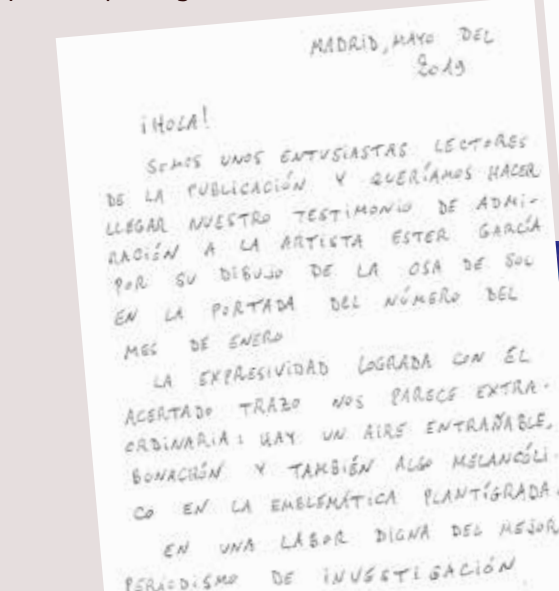 MADRID, MAYO DEL
2019
¡HOLA!
SOMOS UNOS ENTUSIASTAS LECTORES
DE LA PUBLICACIÓN Y QUERÍAMOS HACER
LLEGAR NUESTRO TESTIMONIO DE ADMI-
RACIÓN A LA ARTISTA ESTER GARCÍA
POR SU DIBUJO DE LA OSA DE SOL
EN LA PORTADA DEL NÚMERO DEL
MES DE ENERO
LA EXPRESIVIDAD LOGRADA CON EL
ACERTADO TRAZO NOS PARECE EXTRA-
ORDINARIA: HAY UN AIRE ENTRAÑABLE,
BONACHÓN Y TAMBIÉN ALGO MELANCÓLI-
CO EN LA EMBLEMÁTICA PLANTÍGRADA.
EN UNA LABOR DIGNA DEL MEJOR
PERIODISMO DE INVESTIGACIÓN